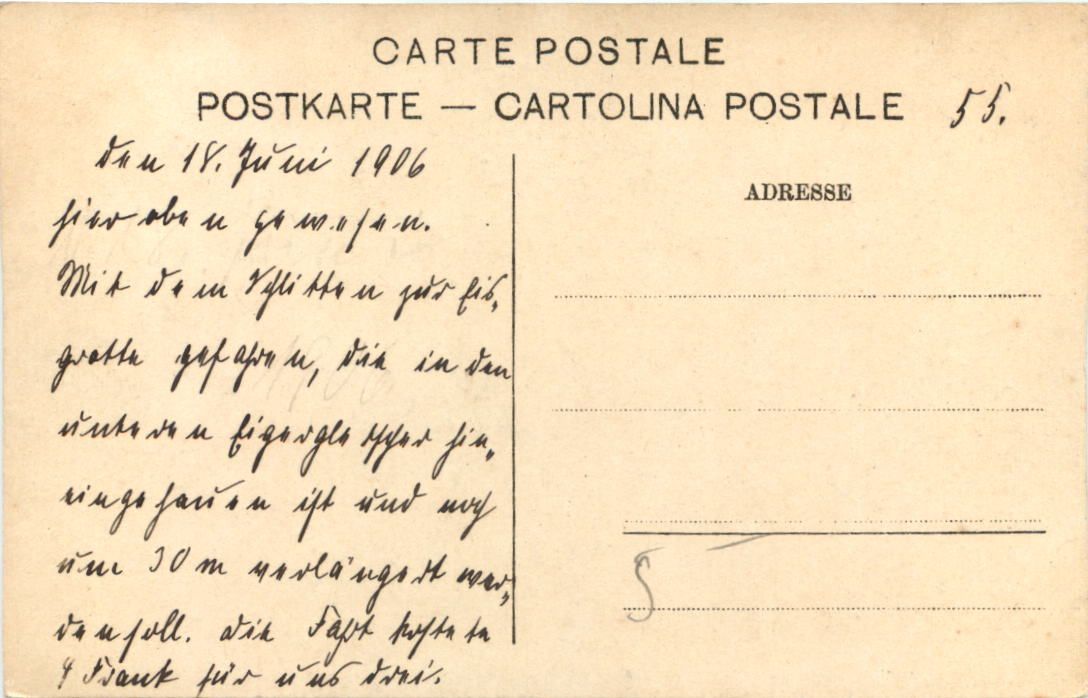 CARTE POSTALE
POSTKARTE — CARTOLINA POSTALE
55.
den 18. Juni 1906
hier oben gewesen.
Mit dem Schlitten zur Eis-
grotte gefahren, die in den
unteren Eigergletscher hin-
eingehauen ist und noch
um 30 m verlängert wer-
den soll. Die Fahrt kostete
4 Frank für uns drei.
ADRESSE